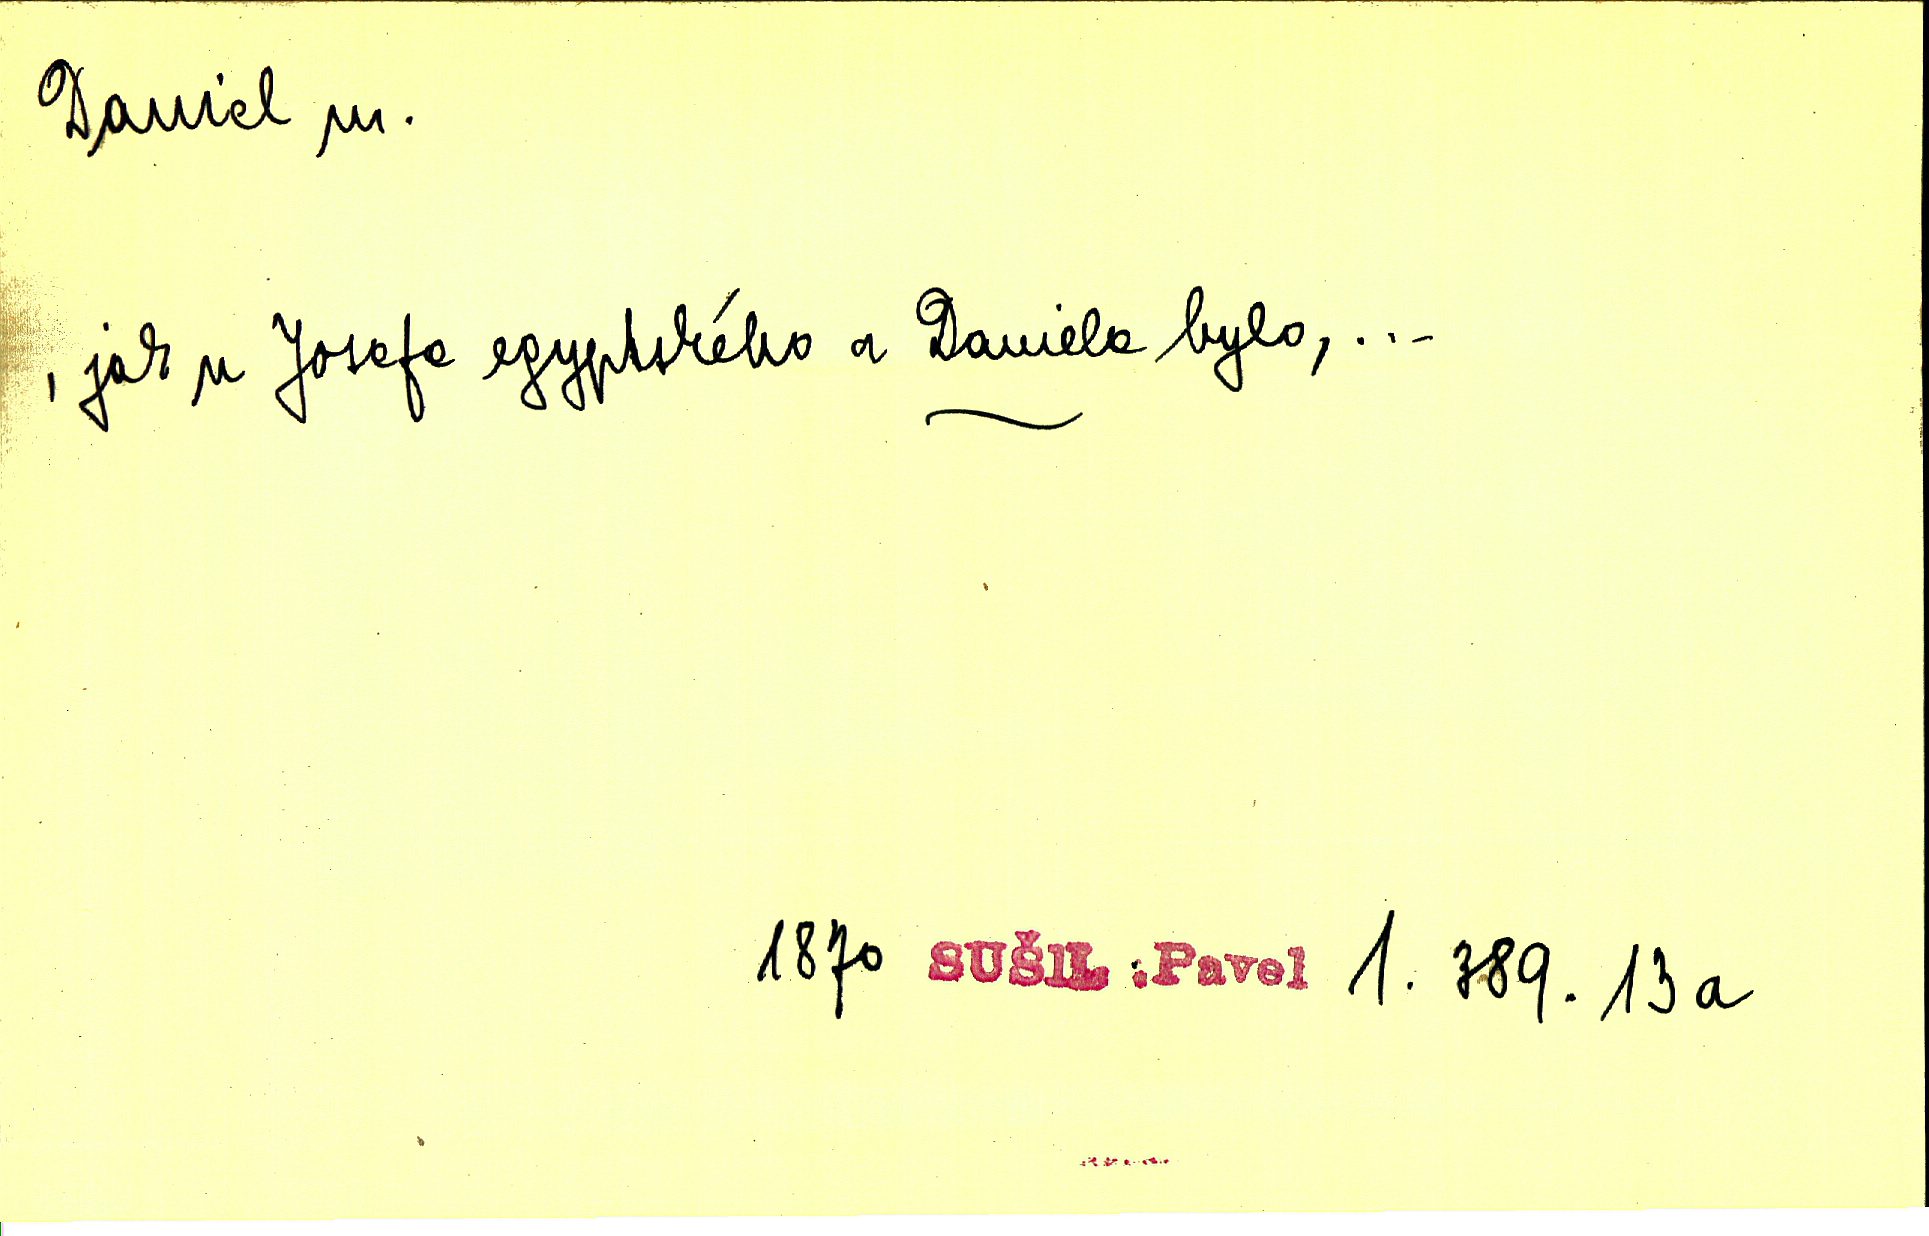 Daniel m.
, jak u Josefa egyptského a Daniela bylo, ...
1870 SUŠIL :Pavel 1. 389. 13a